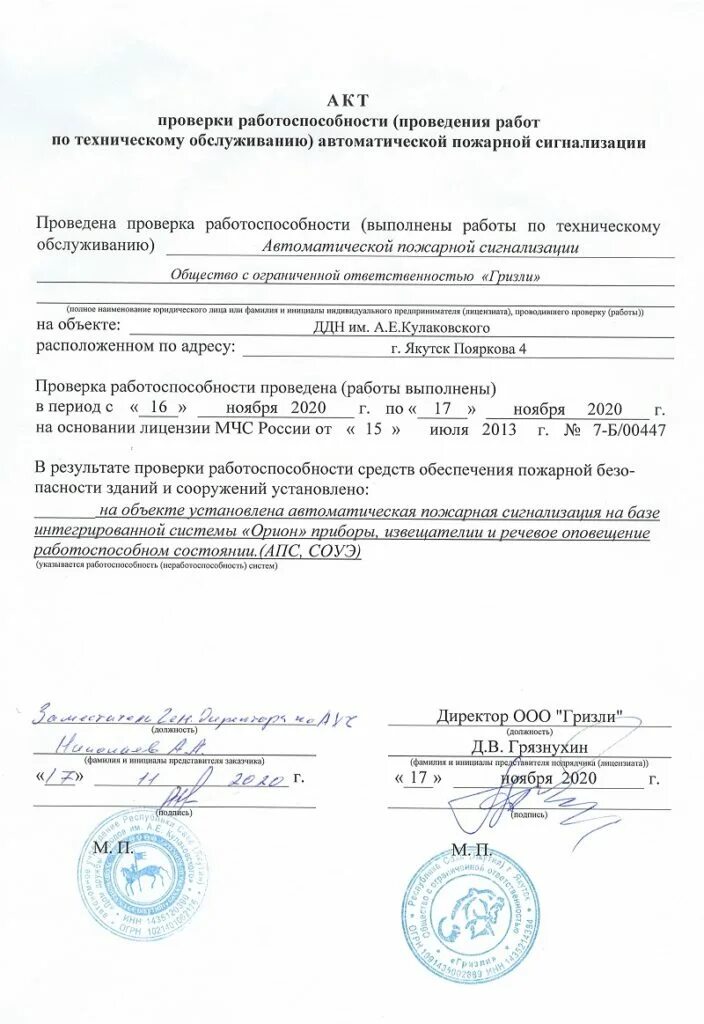 АКТ
проверки работоспособности (проведения работ
по техническому обслуживанию) автоматической пожарной сигнализации
Проведена проверка работоспособности (выполнены работы по техническому
обслуживанию) Автоматической пожарной сигнализации
Общество с ограниченной ответственностью «Гризли»
(полное наименование юридического лица или фамилия и инициалы индивидуального предпринимателя (лицензиата), проводившего проверку (работы))
на объекте: ДДН им. А.Е.Кулаковского
расположенном по адресу: г. Якутск Пояркова 4
Проверка работоспособности проведена (работы выполнены)
в период с « 16 » ноября 2020 г. по « 17 » ноября 2020 г.
на основании лицензии МЧС России от « 15 » июля 2013 г. № 7-Б/00447
В результате проверки работоспособности средств обеспечения пожарной безо-
пасности зданий и сооружений установлено:
на объекте установлена автоматическая пожарная сигнализация на базе
интегрированной системы «Орион» приборы, извещатели и речевое оповещение
работоспособном состоянии.(АПС, СОУЭ)
(указывается работоспособность (неработоспособность) систем)
Заместитель Ген. Директора по АХЧ
(должность)
Николаев А.А.
(фамилия и инициалы представителя заказчика)
«17» 11 2020 г.
(подпись)
М. П.
Директор ООО "Гризли"
(должность)
Д.В. Грязнухин
(фамилия и инициалы представителя подрядчика (лицензиата))
« 17 » ноября 2020 г.
(подпись)
М. П.
Республика Саха (Якутия) г. Якутск
Общество с ограниченной ответственностью
«Гризли»